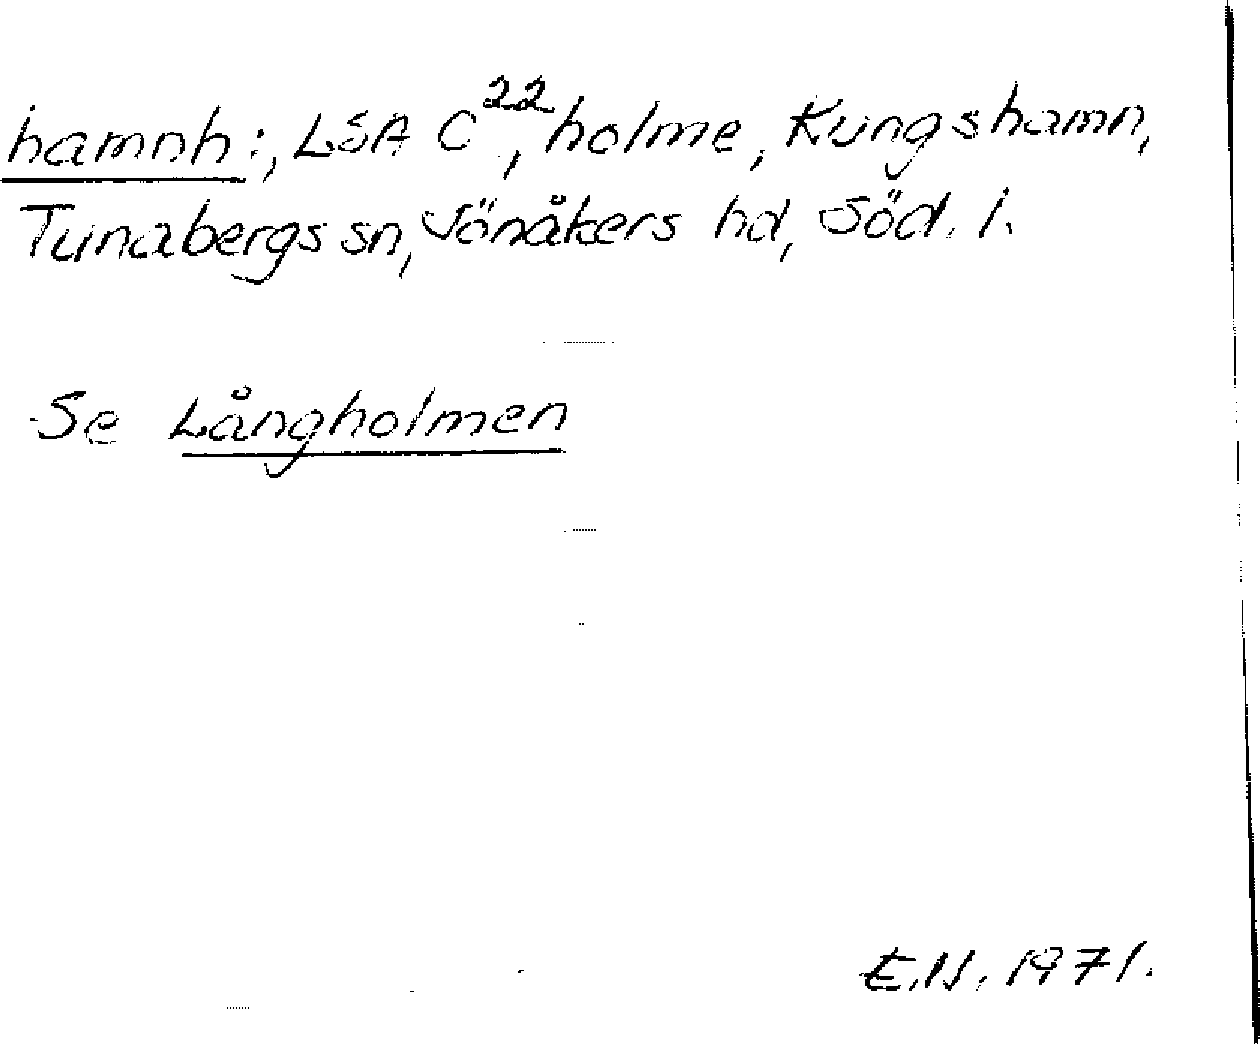 hamnh:, LSA C²², holme, Kungshamn,
Tunabergs sn, Jönåkers hd, Söd. l.
Se Långholmen
E.N. 1971.